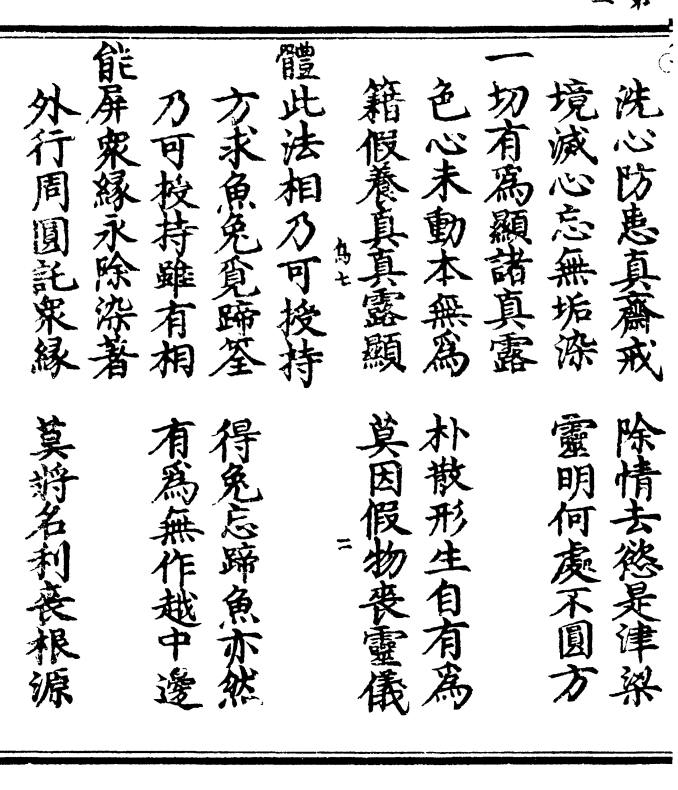 洗心防患真齋戒　除情去慾是津梁
境滅心忘無垢染　靈明何處不圓方
一切有為顯諸真露
色心未動本無為　朴散形生自有為
籍假養真真露顯　莫因假物喪靈儀
體此法相乃可授持
方求魚兔覓蹄筌　得兔忘蹄魚亦然
乃可授持雖有相　有為無作越中邊
能屏眾緣永除染著
外行周圓託眾緣　莫將名利喪根源